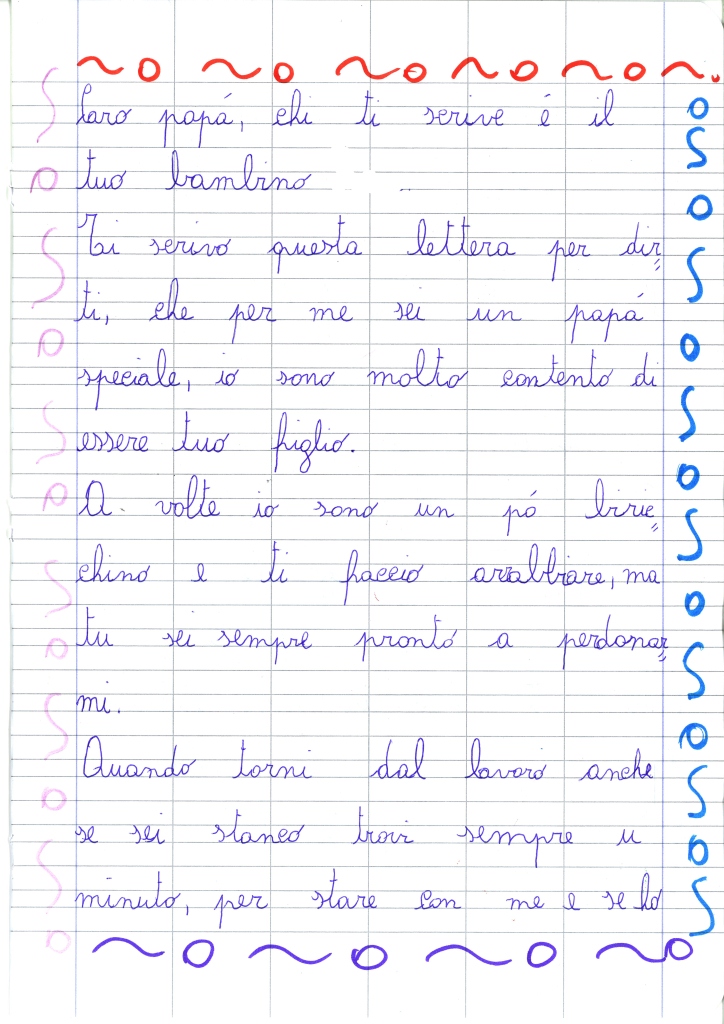 Caro papá, chi ti scrive é il
tuo bambino
Ti scrivo questa lettera per dir=
ti, che per me sei un papá
speciale, io sono molto contento di
essere tuo figlio.
A volte io sono un pó birric=
chino e ti faccio arrabbiare, ma
tu sei sempre pronto a perdonar=
mi.
Quando torni dal lavoro anche
se sei stanco trovi sempre u
minuto, per stare con me e se ho